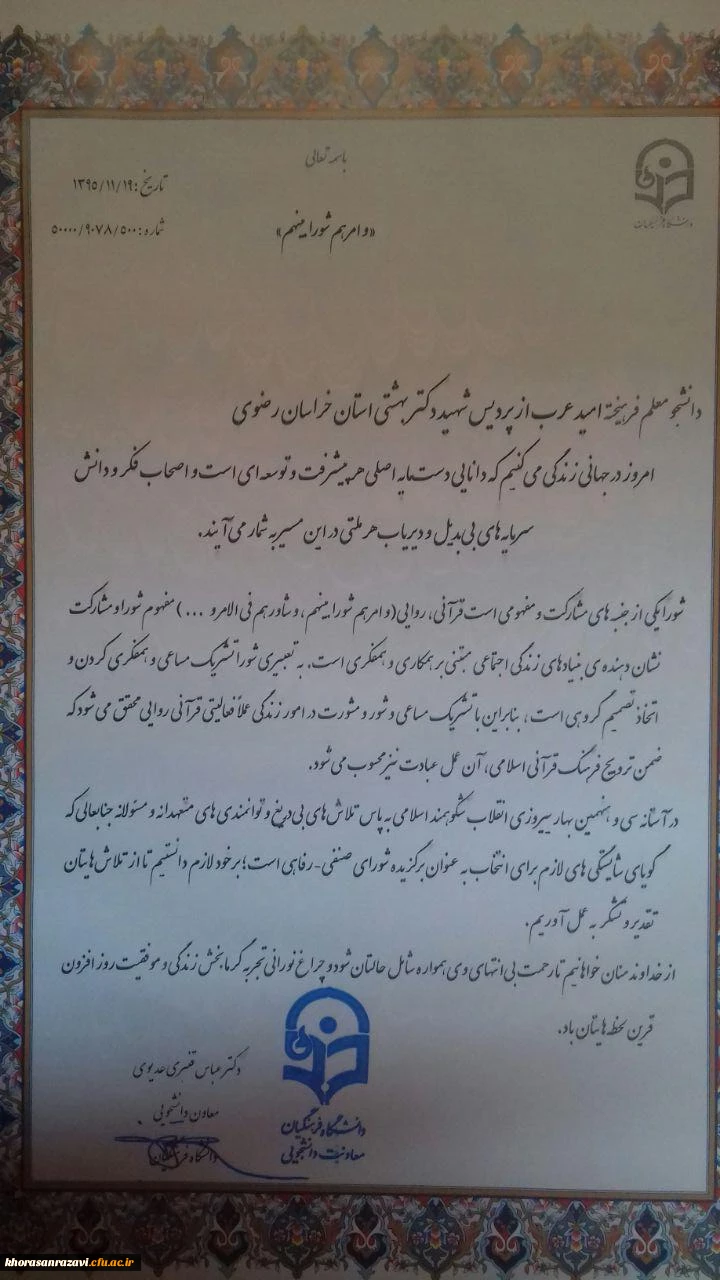 باسمه تعالی
تاریخ: ۱۳۹۵/۱۱/۱۹
شماره: ۵۰۰۰۰/۹۰۷۸/۵۰۰
دانشگاه فرهنگیان
«و امرهم شورا بینهم»
دانشجو معلم فرهیخته امید عرب از پردیس شهید دکتر بهشتی استان خراسان رضوی
امروز در جهانی زندگی می کنیم که دانایی دست مایه اصلی هر پیشرفت و توسعه ای است و اصحاب فکر و دانش
سرمایه های بی بدیل و دیریاب هر ملتی در این مسیر به شمار می آیند.
شورا یکی از جنبه های مشارکت و مفهومی است قرآنی، روایی (و امرهم شورا بینهم، و شاورهم فی الامر و ...) مفهوم شورا و مشارکت
نشان دهنده ی بنیادهای زندگی اجتماعی مبتنی بر همکاری و همفکری است. به تعبیری شورا تشریک مساعی و همفکری کردن و
اتخاذ تصمیم گروهی است، بنابراین با تشریک مساعی و شور و مشورت در امور زندگی عملاً فعالیتی قرآنی روایی محقق می شود که
ضمن ترویج فرهنگ قرآنی اسلامی، آن عمل عبادت نیز محسوب می شود.
در آستانه سی و هشتمین بهار پیروزی انقلاب شکوهمند اسلامی به پاس تلاش های بی دریغ و توانمندی های متعهدانه و مسئولانه جنابعالی که
گویای شایستگی های لازم برای انتخاب به عنوان برگزیده شورای صنفی-رفاهی است؛ بر خود لازم دانستیم تا از تلاش هایتان
تقدیر و تشکر به عمل آوریم.
از خداوند منان خواهانیم تا رحمت بی انتهای وی همواره شامل حالتان شود و چراغ نورانی تجربه گرمابخش زندگی و موفقیت روز افزون
قرین لحظه هایتان باد.
دکتر عباس قنبری عدیوی
معاون دانشجویی
دانشگاه فرهنگیان
دانشگاه فرهنگیان
معاونت دانشجویی
khorasanrazavi.cfu.ac.ir